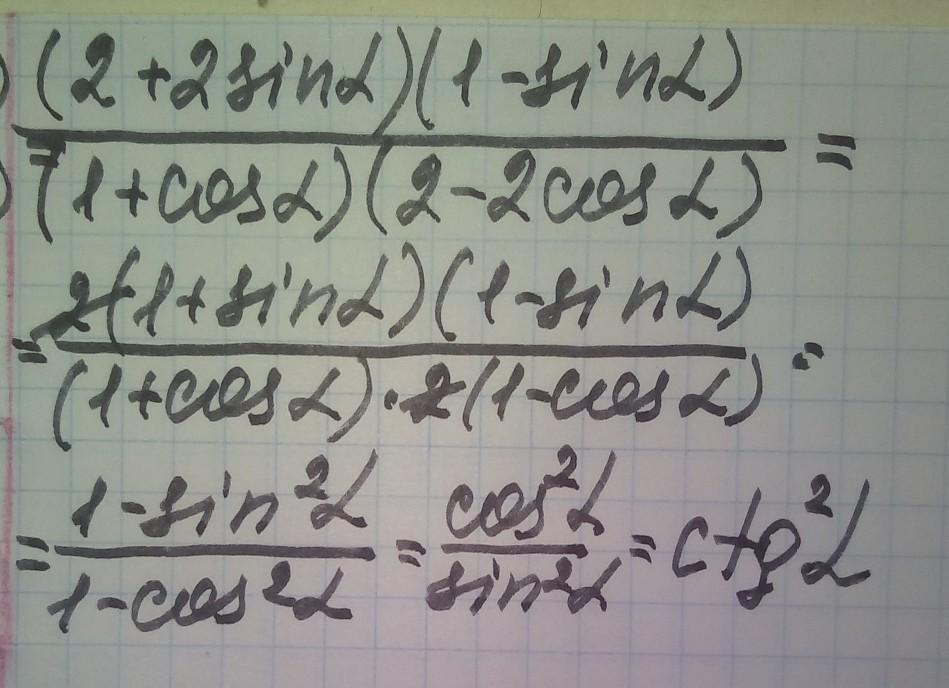 (2+2sinα)(1-sinα)
=
(1+cosα)(2-2cosα)
2(1+sinα)(1-sinα)
= =
(1+cosα)·2(1-cosα)
1-sin²α cos²α
= = = ctg²α
1-cos²α sin²α